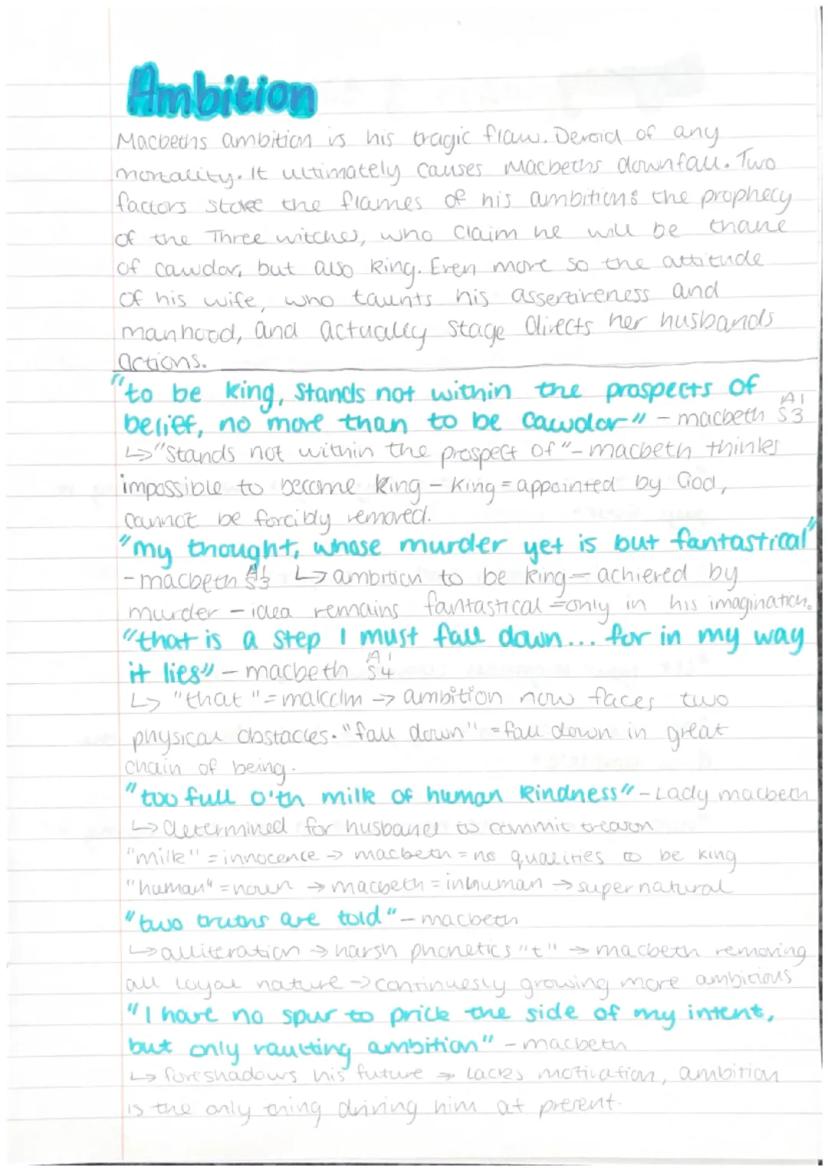 Ambition
Macbeths ambition is his tragic flaw. Devoid of any
mortality. It ultimately causes Macbeths downfall. Two
factors stoke the flames of his ambition: the prophecy
of the Three witches, who claim he will be thane
of cawdor, but also king. Even more so the attitude
of his wife, who taunts his assertiveness and
manhood, and actually stage directs her husbands
actions.
"to be king, stands not within the prospects of
belief, no more than to be Cawdor" - macbeth A1 S3
↳ "Stands not within the prospect of" - macbeth thinks
impossible to become king - king = appointed by God,
cannot be forcibly removed.
"my thought, whose murder yet is but fantastical"
- macbeth A1 S3 ↳ ambition to be king - achieved by
murder - idea remains fantastical = only in his imagination.
"that is a step I must fall down... for in my way
it lies" - macbeth A1 S4
↳ "that" = malcolm → ambition now faces two
physical obstacles. "fall down" = fall down in great
chain of being.
"too full o'th milk of human kindness" - Lady macbeth
↳ determined for husband to commit treason
"milk" = innocence → macbeth = no qualities to be king
"human" = noun → macbeth = inhuman → supernatural
"two truths are told" - macbeth
↳ alliteration → harsh phonetics "t" → macbeth removing
all loyal nature → continuesly growing more ambitious
"I have no spur to prick the side of my intent,
but only vaulting ambition" - macbeth
↳ foreshadows his future → lacks motivation, ambition
is the only thing driving him at present.